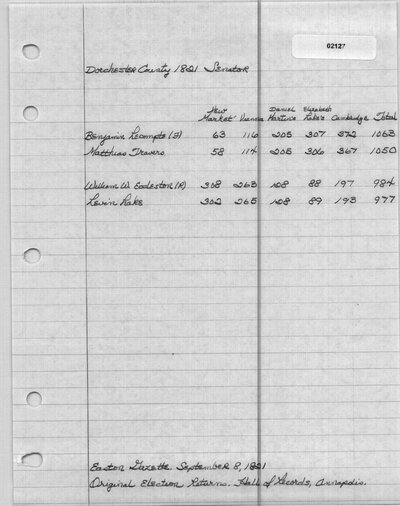 02127
Dorchester County 1821 Senator
New Market Vienna Daniel Martin's Elizabeth Lake's Cambridge Total
Benjamin Lecompte (F) 63 116 205 307 372 1063
Matthias Travers 58 114 205 306 367 1050
William W. Eccleston (R) 308 263 128 88 197 984
Levin Lake 302 265 128 89 193 977
Easton Gazette. September 8, 1821
Original Election Returns. Hall of Records, Annapolis.